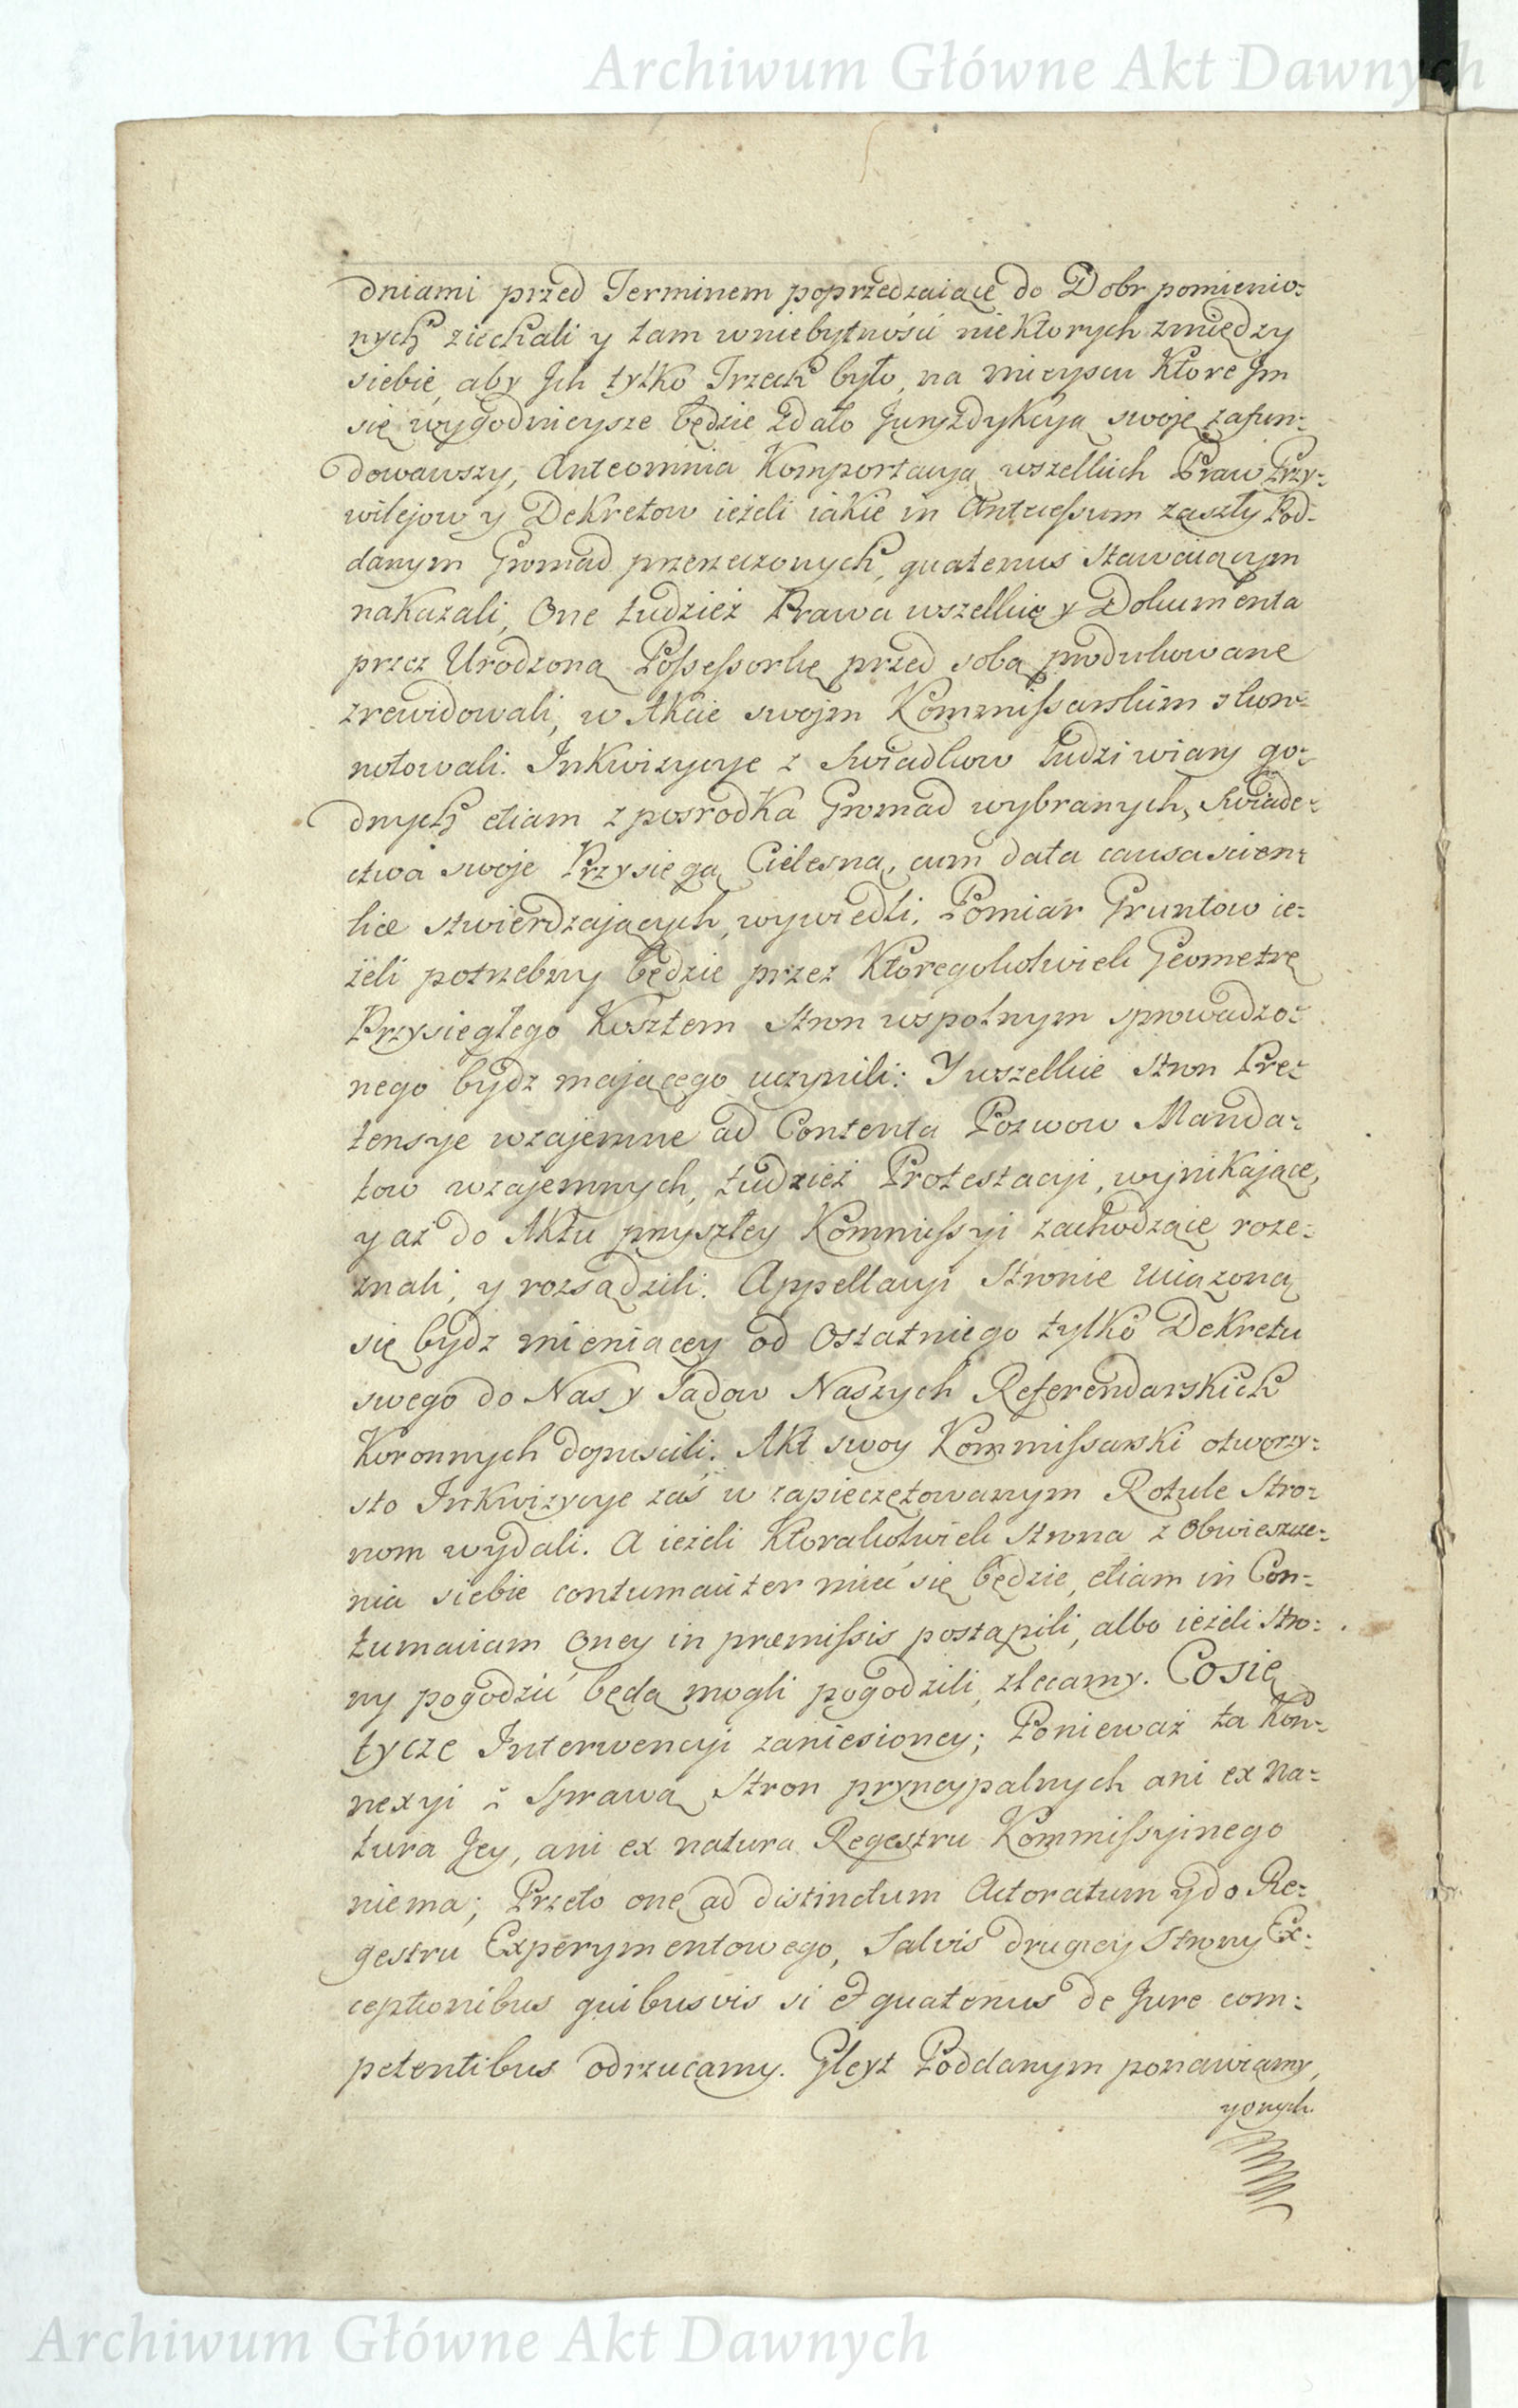 Archiwum Główne Akt Dawnych
dniami przed Terminem poprzedzaiące do Dobr pomienio=
nych ziechali y tam wniebytności niektorych zmiędzy
siebie, aby Jch tylko Trzech było, na mieyscu Które Jm
się wygodnieysze będzie zdało Juryzdykcyą swoję zafun=
dowawszy, Anteomnia Komportacyą wszelkich Praw Przy=
wilejow y Dekretow ieżeli iakie in Antecessum zaszły Pod=
danym Gromad przerzeczonych, quatenus stawaiącym
nakazali, One tudzież Prawa wszelkie y Dokumenta
przez Urodzoną Possessorkę przed sobą produkowane
zrewidowali, w Akcie swojm Kommissarskim skon=
notowali. Inkwizycye z Swiadkow ludzi wiary go=
dnych etiam z posrodka Gromad wybranych, Swiade=
ctwa swoje Przysięgą Cielesną, cum data causa scien=
tiae stwierdzających, wywiedli. Pomiar Gruntow ie=
żeli potrzebny będzie przez Ktoregokolwiek Geometrę
Przysięgłego Kosztem stron wspolnym sprowadzo=
nego bydz mającego uczynili: Y wszelkie stron Pre=
tensye wzajemne ad Contenta Pozwow Manda=
tow wzajemnych, tudzież Protestacyi, wynikające,
y aż do Aktu przyszłey Kommissyi zachodzące roze=
znali, y rozsądzili. Appellacyi stronie Uciążoną
się bydz mieniącey od Ostatniego tylko Dekretu
swego do Nas y Sądow Naszych Referendarskich
Koronnych dopuscili. Akt swoy Kommissarski otworzy=
sto Inkwizycye zaś w zapieczętowanym Rotule Stro=
nom wydali. A ieżeli Ktorakolwiek Strona z Obwieszcze=
nia siebie contumaciter mieć się będzie, etiam in Con=
tumaciam Oney in praemissis postąpili, albo ieżeli Stro=
ny pogodzić będą mogli pogodzili, zlecamy. Co się
tycze Interwencyi zaniesioney; Ponieważ ta Kon=
nexyi z Sprawą Stron pryncypalnych ani ex na=
tura Jey, ani ex natura Regestru Kommissyinego
niema; Przeto onę ad distinctum Actoratum y do Re=
gestru Experymentowego, Salvis drugiey Strony Ex=
ceptionibus quibusvis si et quatenus de Jure com=
petentibus odrzucamy. Gleyt Poddanym ponawiamy,
yonych
Archiwum Główne Akt Dawnych